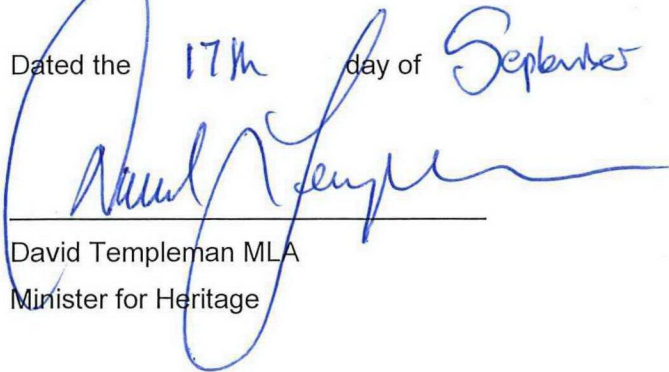 Dated the 17th day of September
David Templeman
David Templeman MLA
Minister for Heritage